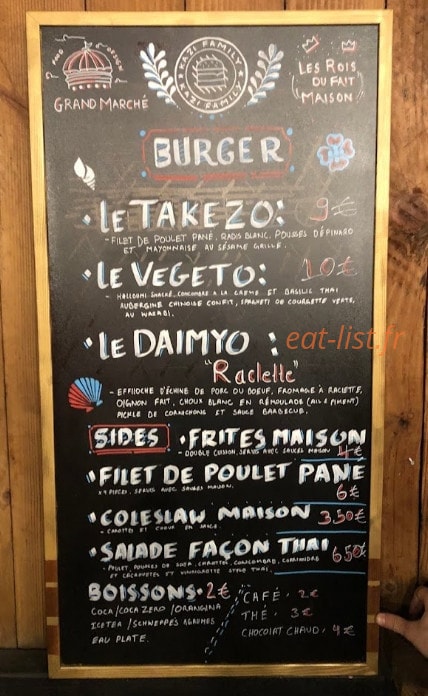 FOOD & DESIGN
GRAND MARCHÉ
KAZI FAMILY
KAZI FAMILY
LES ROIS
DU FAIT
MAISON
BURGER
• LE TAKEZO: 9€
- FILET DE POULET PANÉ, RADIS BLANC, POUSSES D'ÉPINARD
ET MAYONNAISE AU SÉSAME GRILLÉ.
• LE VEGETO: 10€
- HALLOUMI SNACKÉ, CONCOMBRE A LA CREME ET BASILIC THAI
AUBERGINE CHINOISE CONFIT, SPAGHETI DE COURGETTE VERTE,
AU WAKABI.
• LE DAIMYO :
eat-list.fr
"Raclette"
- EFFILOCHE D'ÉCHINE DE PORC OU BOEUF, FROMAGE À RACLETTE,
OIGNON FRIT, CHOUX BLANC EN RÉMOULADE (AIL & PIMENT)
PICKLE DE CORNICHONS ET SAUCE BARBECUE.
SIDES • FRITES MAISON
- DOUBLE CUISSON, SERVIS AVEC SAUCE MAISON 4€
• FILET DE POULET PANÉ
6€
PIECES, SERVIS AVEC SAUCES MAISON.
• COLESLAW MAISON 3.50€
- CAROTTES ET CHOUX EN SAUCE.
• SALADE FAÇON THAI 6.50€
- POULET, POUSSES DE SOJA, CAROTTES, CONCOMBRE, CORIANDRE
ET CACAHUETES ET VINAIGRETTE STYLE THAI.
BOISSONS • 2€
COCA/COCA ZERO/ORANGINA
ICETEA/SCHWEPPES AGRUMES
EAU PLATE.
CAFÉ . 2€
THÉ . 3€
CHOCOLAT CHAUD . 4€